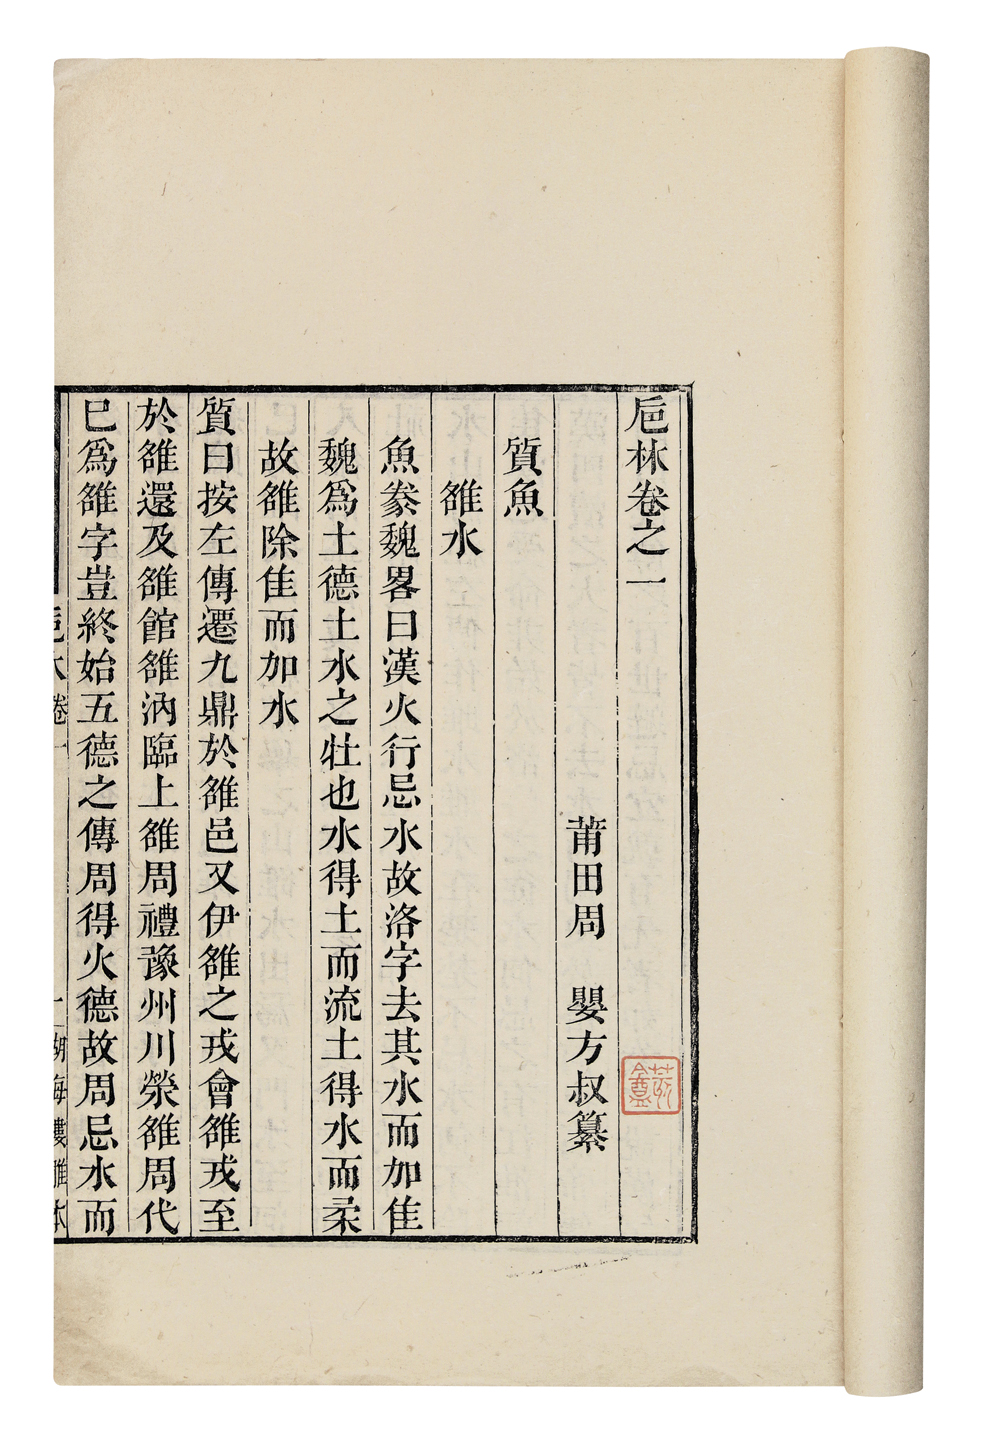 巵林卷之一
莆田周　嬰方叔纂
質魚
雒水
魚豢魏畧曰漢火行忌水故洛字去其水而加隹
魏爲土德土水之牡也水得土而流土得水而柔
故雒除隹而加水
質曰按左傳遷九鼎於雒邑又伊雒之戎會雒戎至
於雒還及雒館雒汭臨上雒周禮豫州川滎雒周代
巳爲雒字豈終始五德之傳周得火德故周忌水而
巵林卷一
一湖海樓雕本